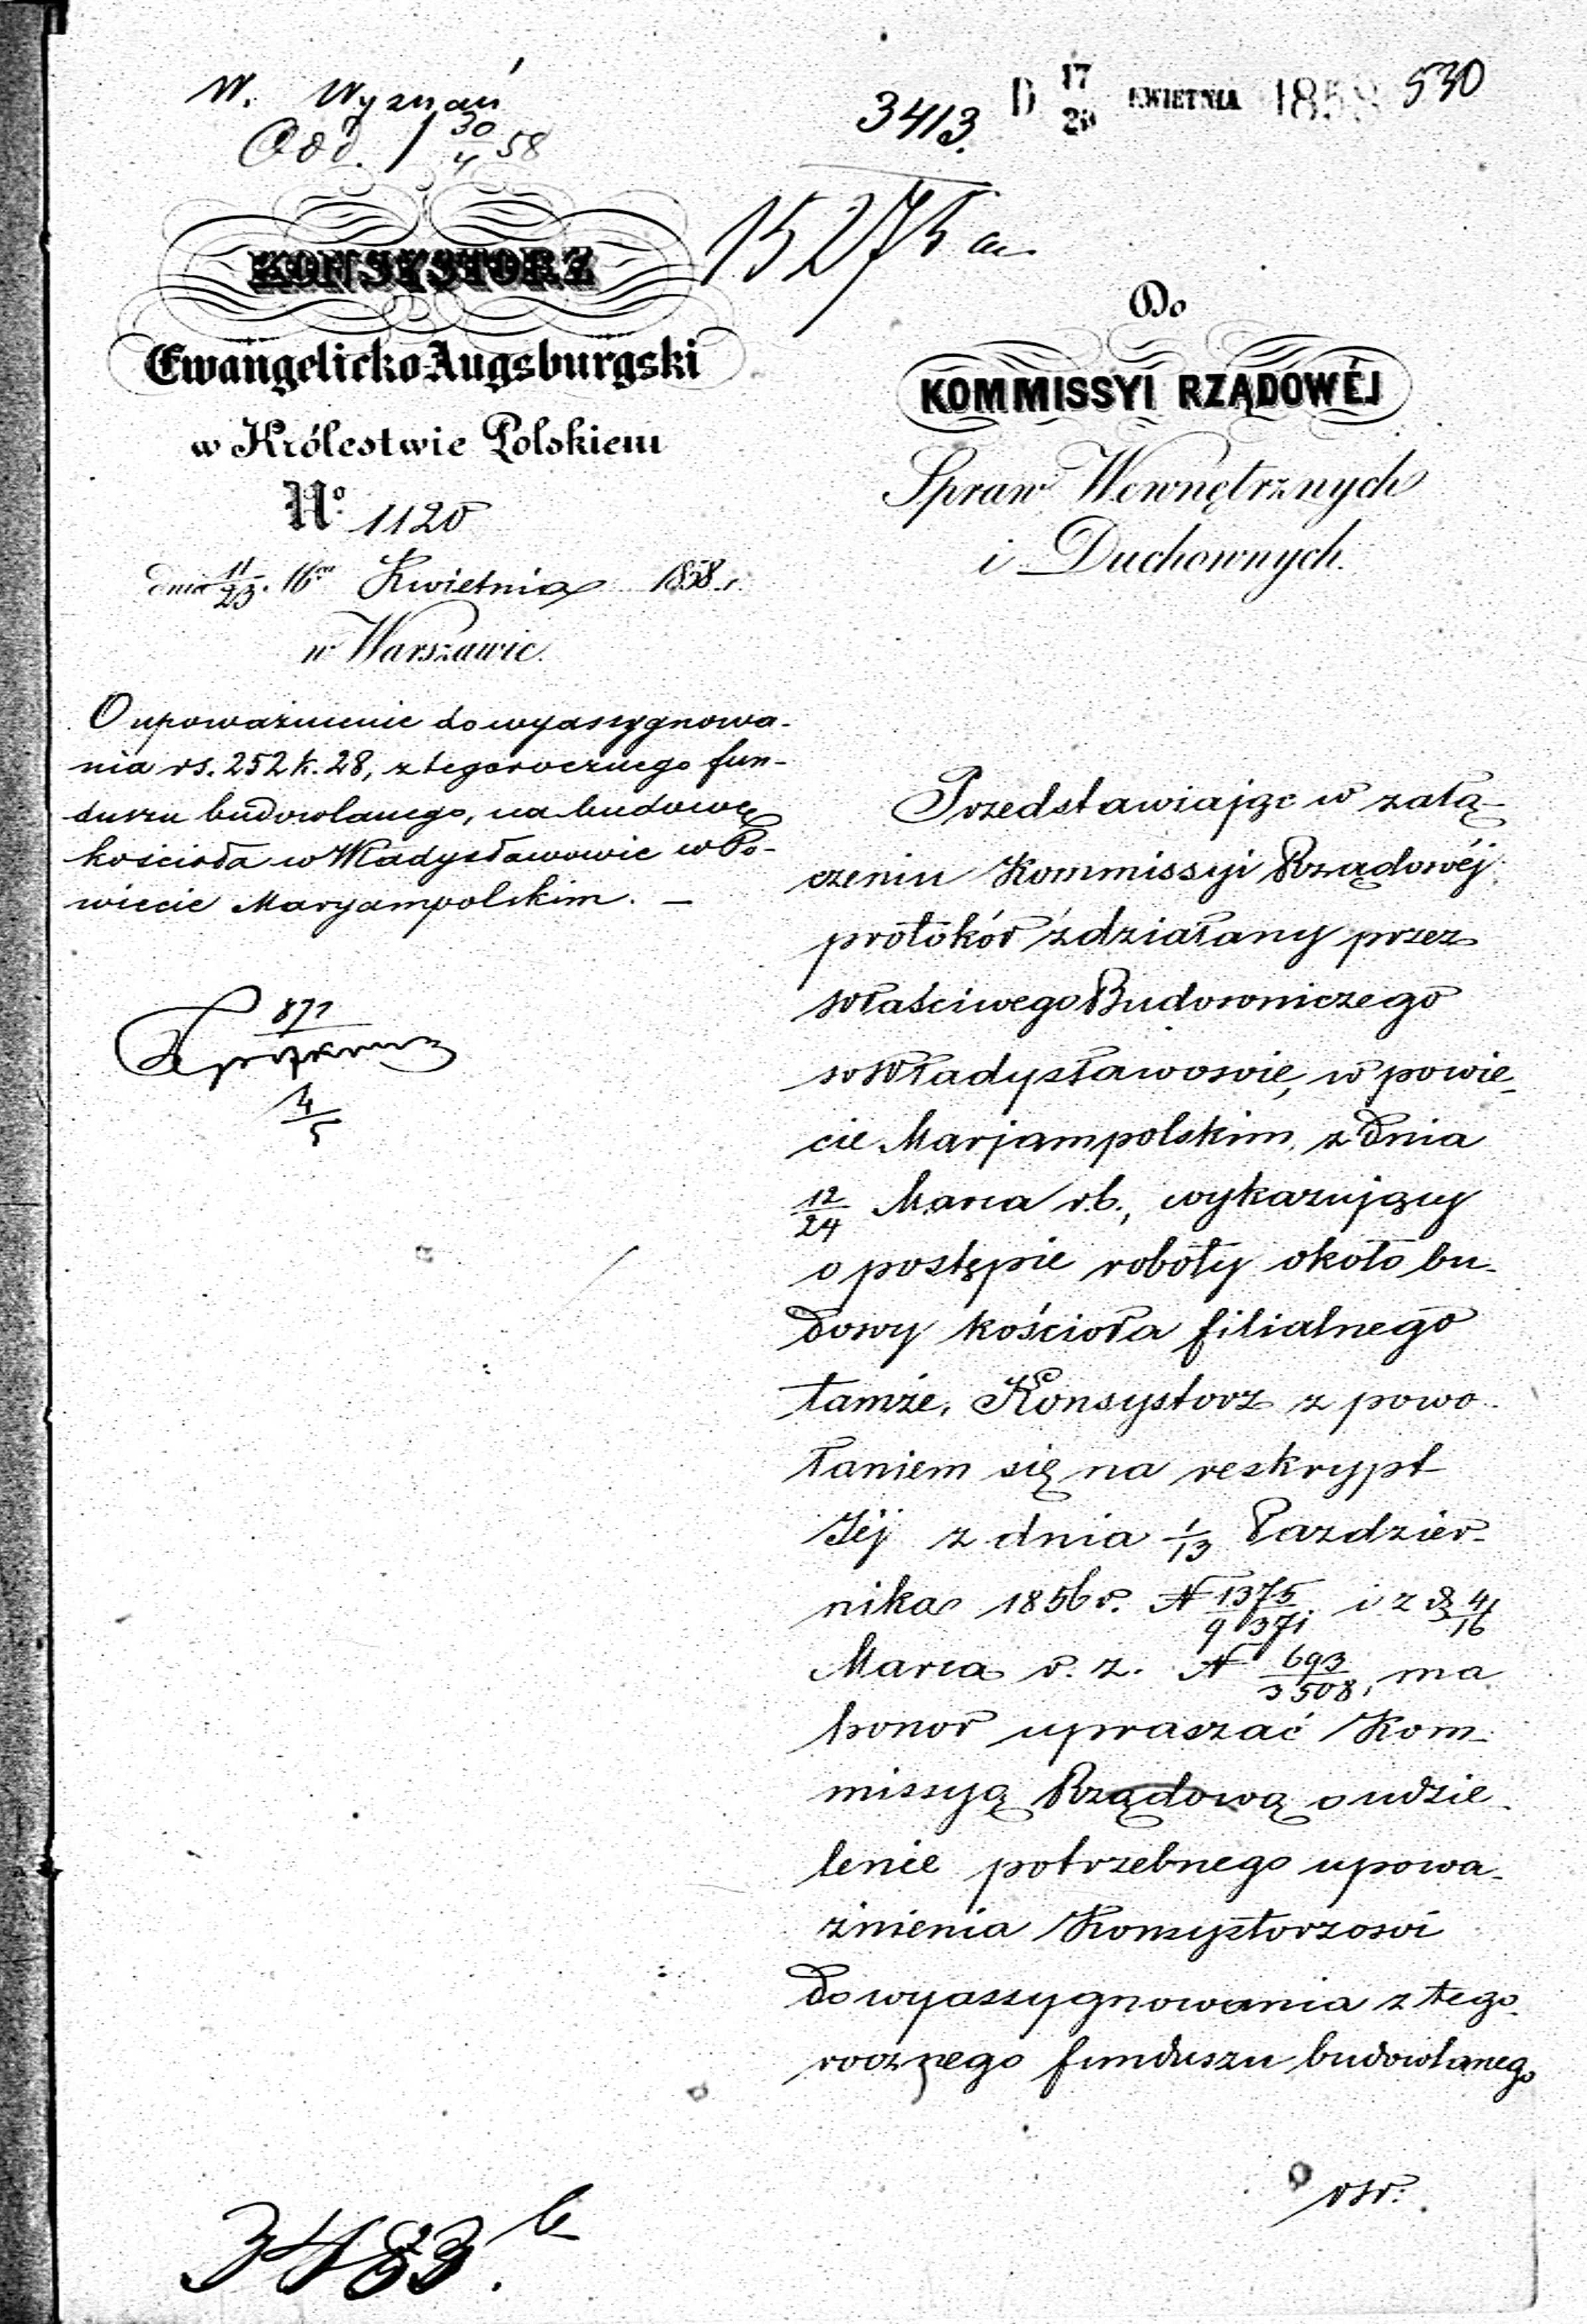 W. Wyznań
Odd. 1 30/4 58
3413.
D 17/29 KWIETNIA 1858
530
15275
KONSYSTORZ
Ewangelicko-Augsburgski
w Królestwie Polskiem
No. 1120
dnia 11/23. 16go Kwietnia 1858 r.
w Warszawie.
O upoważnienie do wyassygnowa-
nia rs. 252 k. 28, z tegorocznego fun-
duszu budowlanego, na budowę
kościoła w Władysławowie w Po-
wiecie Maryampolskim. —
877
4/5
Do
KOMMISSYI RZĄDOWÉJ
Spraw Wewnętrznych
i Duchownych.
Przedstawiając w załą-
czeniu Kommissyi Rządowéj
protokół zdziałany przez
właściwego Budowniczego
w Władysławowie, w powie-
cie Marjampolskim, z dnia
12/24 Marca r.b., wykazujący
o postępie roboty około bu-
dowy kościoła filialnego
tamże, Konsystorz z powo-
łaniem się na reskrypt
Jéj z dnia 1/13 Pazdzier-
nika 1856 r. N 1375/9371 i z d 4/16
Marca r. z. N 693/3508, ma
honor upraszać Kom-
missyą Rządową o udzie-
lenie potrzebnego upowa-
żnienia Konsystorzowi
do wyassygnowania z tego-
rocznego funduszu budowlanego
rsr.
3483. b